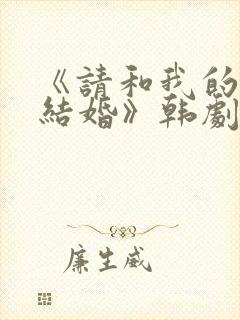 《請和我的
結婚》韩劇
廉生威